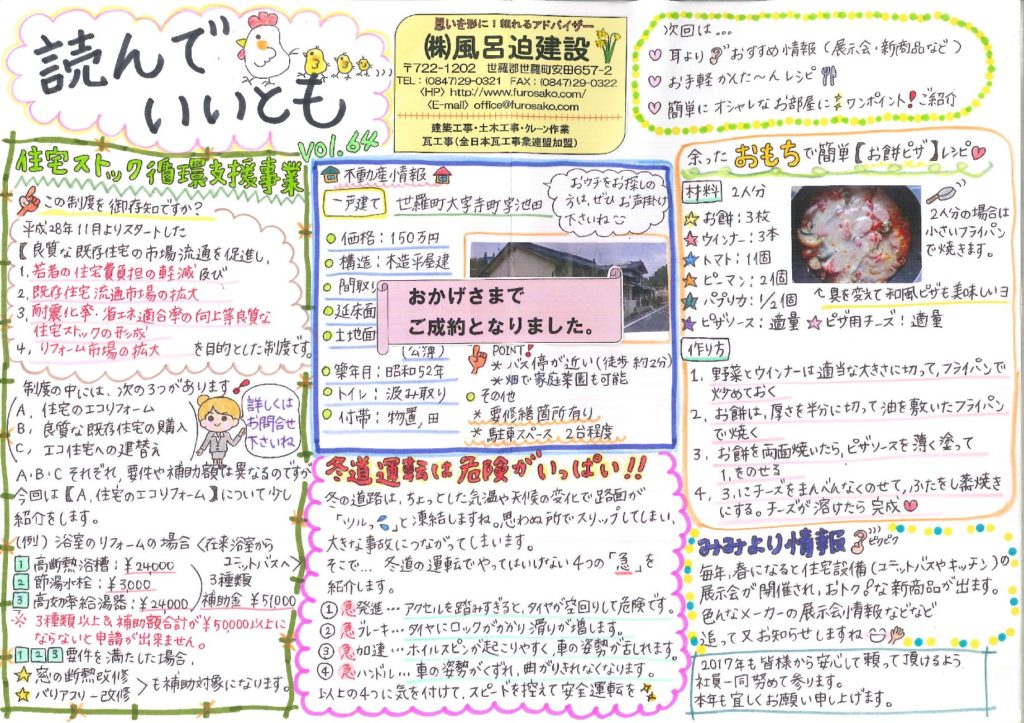 読んで
いいとも
VOL.64
思いを形に!頼れるアドバイザー
㈱風呂迫建設
〒722-1202 世羅郡世羅町安田657-2
TEL:(0847)29-0321 FAX:(0847)29-0322
〈HP〉http://www.furosako.com/
〈E-mail〉office@furosako.com
建築工事・土木工事・クレーン作業
瓦工事(全日本瓦工事業連盟加盟)
次回は…
耳よりおすすめ情報(展示会・新商品など)
お手軽かんた〜んレシピ
簡単にオシャレなお部屋にワンポイント!ご紹介
住宅ストック循環支援事業
この制度を御存知ですか?
平成28年11月よりスタートした
【良質な既存住宅の市場流通を促進し、
1.若者の住宅費負担の軽減及び
2.既存住宅流通市場の拡大
3.耐震化率・省エネ適合率の向上等良質な
住宅ストックの形成
4.リフォーム市場の拡大 を目的とした制度です。
制度の中には、次の3つがあります
A.住宅のエコリフォーム
B.良質な既存住宅の購入
C.エコ住宅への建替え
詳しくは
お問合せ
下さいね
A・B・Cそれぞれ、要件や補助額は異なるのですが
今回は【A.住宅のエコリフォーム】について少し
紹介をします。
(例)浴室のリフォームの場合〈在来浴室から
ユニットバスへ〉
1 高断熱浴槽:¥24000
2 節湯水栓:¥3000
3 高効率給湯器:¥24000
3種類
補助金 ¥51000
※3種類以上&補助額合計が¥50,000以上に
ならないと申請が出来ません。
1 2 3 要件を満たした場合、
☆窓の断熱改修
☆バリアフリー改修
も補助対象になります。
不動産情報
一戸建て
世羅町大字寺町字池田
おウチをお探しの
方は、ぜひお声掛け
下さいね
価格:150万円
構造:木造平屋建
間取り
延床面
土地面
(公簿)
おかげさまで
ご成約となりました。
築年月:昭和52年
トイレ:汲み取り
付帯:物置,田
POINT!
*バス停が近い(徒歩約2分)
*畑で家庭菜園も可能
その他
*要修繕箇所有り
*駐車スペース 2台程度
冬道運転は危険がいっぱい!!
冬の道路は、ちょっとした気温や天候の変化で路面が
「ツルっ」と凍結しますね。思わぬ所でスリップしてしまい、
大きな事故につながってしまいます。
そこで… 冬道の運転でやってはいけない4つの「急」を
紹介します。
①急発進…アクセルを踏みすぎると、タイヤが空回りして危険です。
②急ブレーキ…タイヤにロックがかかり滑りが増します。
③急加速…ホイルスピンが起こりやすく、車の姿勢が乱れます。
④急ハンドル…車の姿勢がくずれ、曲がりきれなくなります。
以上の4つに気を付けて、スピードを控えて安全運転を
余ったおもちで簡単【お餅ピザ】レシピ
材料 2人分
お餅:3枚
ウインナー:3本
トマト:1個
ピーマン:2個
パプリカ:1/2個
ピザソース:適量 ピザ用チーズ:適量
2人分の場合は
小さいフライパン
で焼きます。
具を変えて和風ピザも美味しいヨ
作り方
1.野菜とウィンナーは適当な大きさに切って、フライパンで
炒めておく
2.お餅は、厚さを半分に切って油を敷いたフライパン
で焼く
3.お餅を両面焼いたら、ピザソースを薄く塗って
1.をのせる
4.3.にチーズをまんべんなくのせて、ふたをし蒸焼き
にする。チーズが溶けたら完成
みみより情報
ピクピク
毎年、春になると住宅設備(ユニットバスやキッチン)の
展示会が開催され、おトクな新商品が出ます。
色んなメーカーの展示会情報などなど
追って又お知らせしますね
2017年も皆様から安心して頼って頂けるよう
社員一同努めて参ります。
本年も宜しくお願い申し上げます。